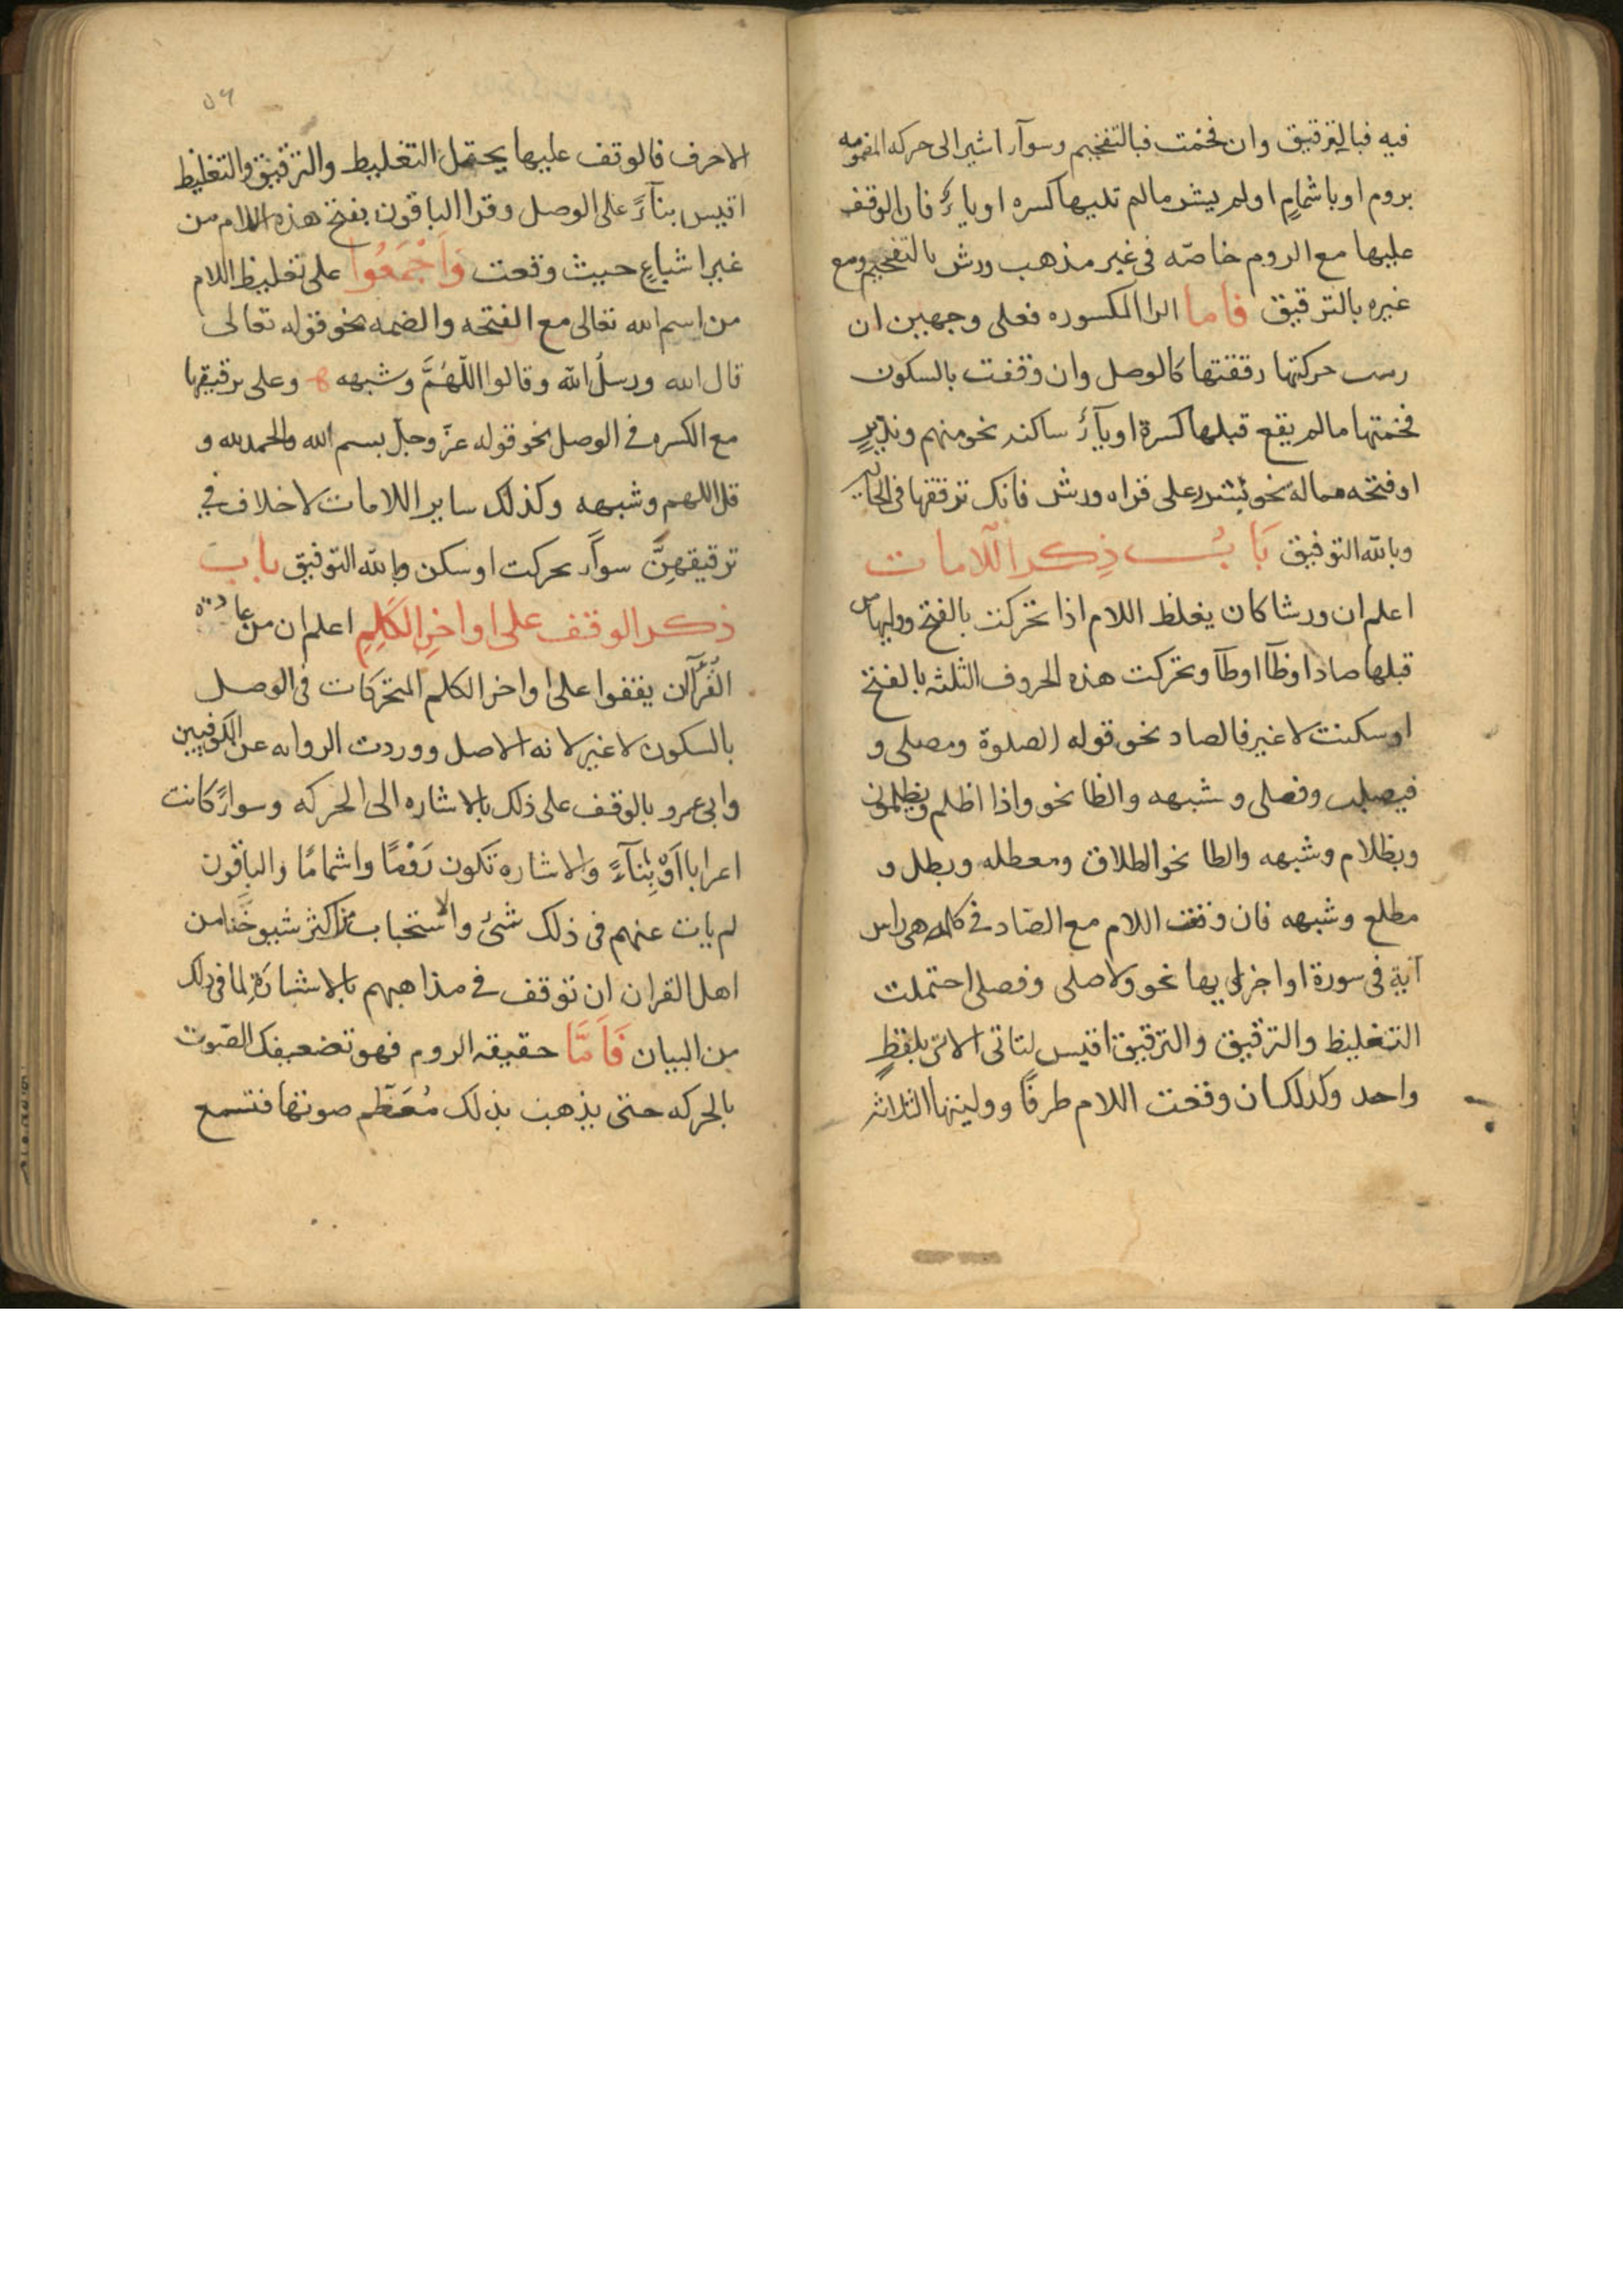 فيه فبالترقيق وان فخمت فبالتفخيم وسوآء اشير الى حركه المضمومه
بروم او باشمامٍ او لم يشر مالم تليها كسره او ياءٌ فان الوقف
عليها مع الروم خاصّه فى غير مذهب ورش بالتفخيم ومع
غيره بالترقيق فاما الرا المكسوره فعلى وجهين ان
رمت حركتها رققتها كالوصل وان وقفت بالسكون
فخمتها مالم يقع قبلها كسرة او يآءٌ ساكنه نحو منهمر ونذيرٍ
او فتحه مماله نحو بشرر على قراه ورش فانك ترققها فى الحالين
وبالله التوفيق بَابُ ذِكر اللّامات
اعلم ان ورشا كان يغلظ اللام اذا تحركت بالفتح ووليها من
قبلها صاد او ظآ او طآ وتحركت هذه الحروف الثلثه بالفتح
او سكنت لا غير فالصاد نحو قوله الصلوة ومصلى و
فيصلب وفصلى وشبهه والظا نحو واذا اظلم ويظلمون
وبظلام وشبهه والطا نحو الطلاق ومعطله وبطل و
مطلع وشبهه فان وقعت اللام مع الصاد فى كلمه هى راس
آية فى سورة اواخر ايها نحو ولا صلى وفصلى احتملت
التغليظ والترقيق والترقيق اقيس لتاتى الاى بلفظٍ
واحد وكذلك ان وقعت اللام طرفًا ووليتها الثلاثة
٥٦
الاحرف فالوقف عليها يحتمل التغليظ والترقيق والتغليظ
اقيس بنآءً على الوصل وقرا الباقون بفتح هذه اللام من
غير اشباعٍ حيث وقعت وَاَجْمَعُوا على تغليظ اللام
من اسم الله تعالى مع الفتحه والضمه نحو قوله تعالى
قال الله ورسلُ الله وقالوا اللّهُمَّ وشبهه وعلى ترقيقها
مع الكسره فى الوصل نحو قوله عزّ وجلّ بسم الله والحمد لله و
قل اللهم وشبهه وكذلك ساير اللامات لا خلاف فى
ترقيقهِنَّ سوآء تحركت او سكن وبالله التوفيق باب
ذكر الوقف على اواخِرِ الكَلِمِ اعلم ان من عادة
القُرّآءِ ان يقفوا على اواخر الكلم المتحركات فى الوصل
بالسكون لا غير لانه الاصل ووردت الروايه عن الكوفيين
وابى عمرو بالوقف على ذلك بالاشاره الى الحركه وسوآءً كانت
اعرابا اَوْ بِنآءً والاشاره تكون رَوْمًا واشمامًا والباقون
لم يات عنهم فى ذلك شئ والاستحباب من اكثر شيوخنا من
اهل القران ان توقف فى مذاهبهم بالاشارَةِ لما فى ذلك
من البيان فَاَمَّا حقيقه الروم فهو تضعيفك الصّوت
بالحركه حتى يذهب بذلك مُعَظم صوتها فتسمع